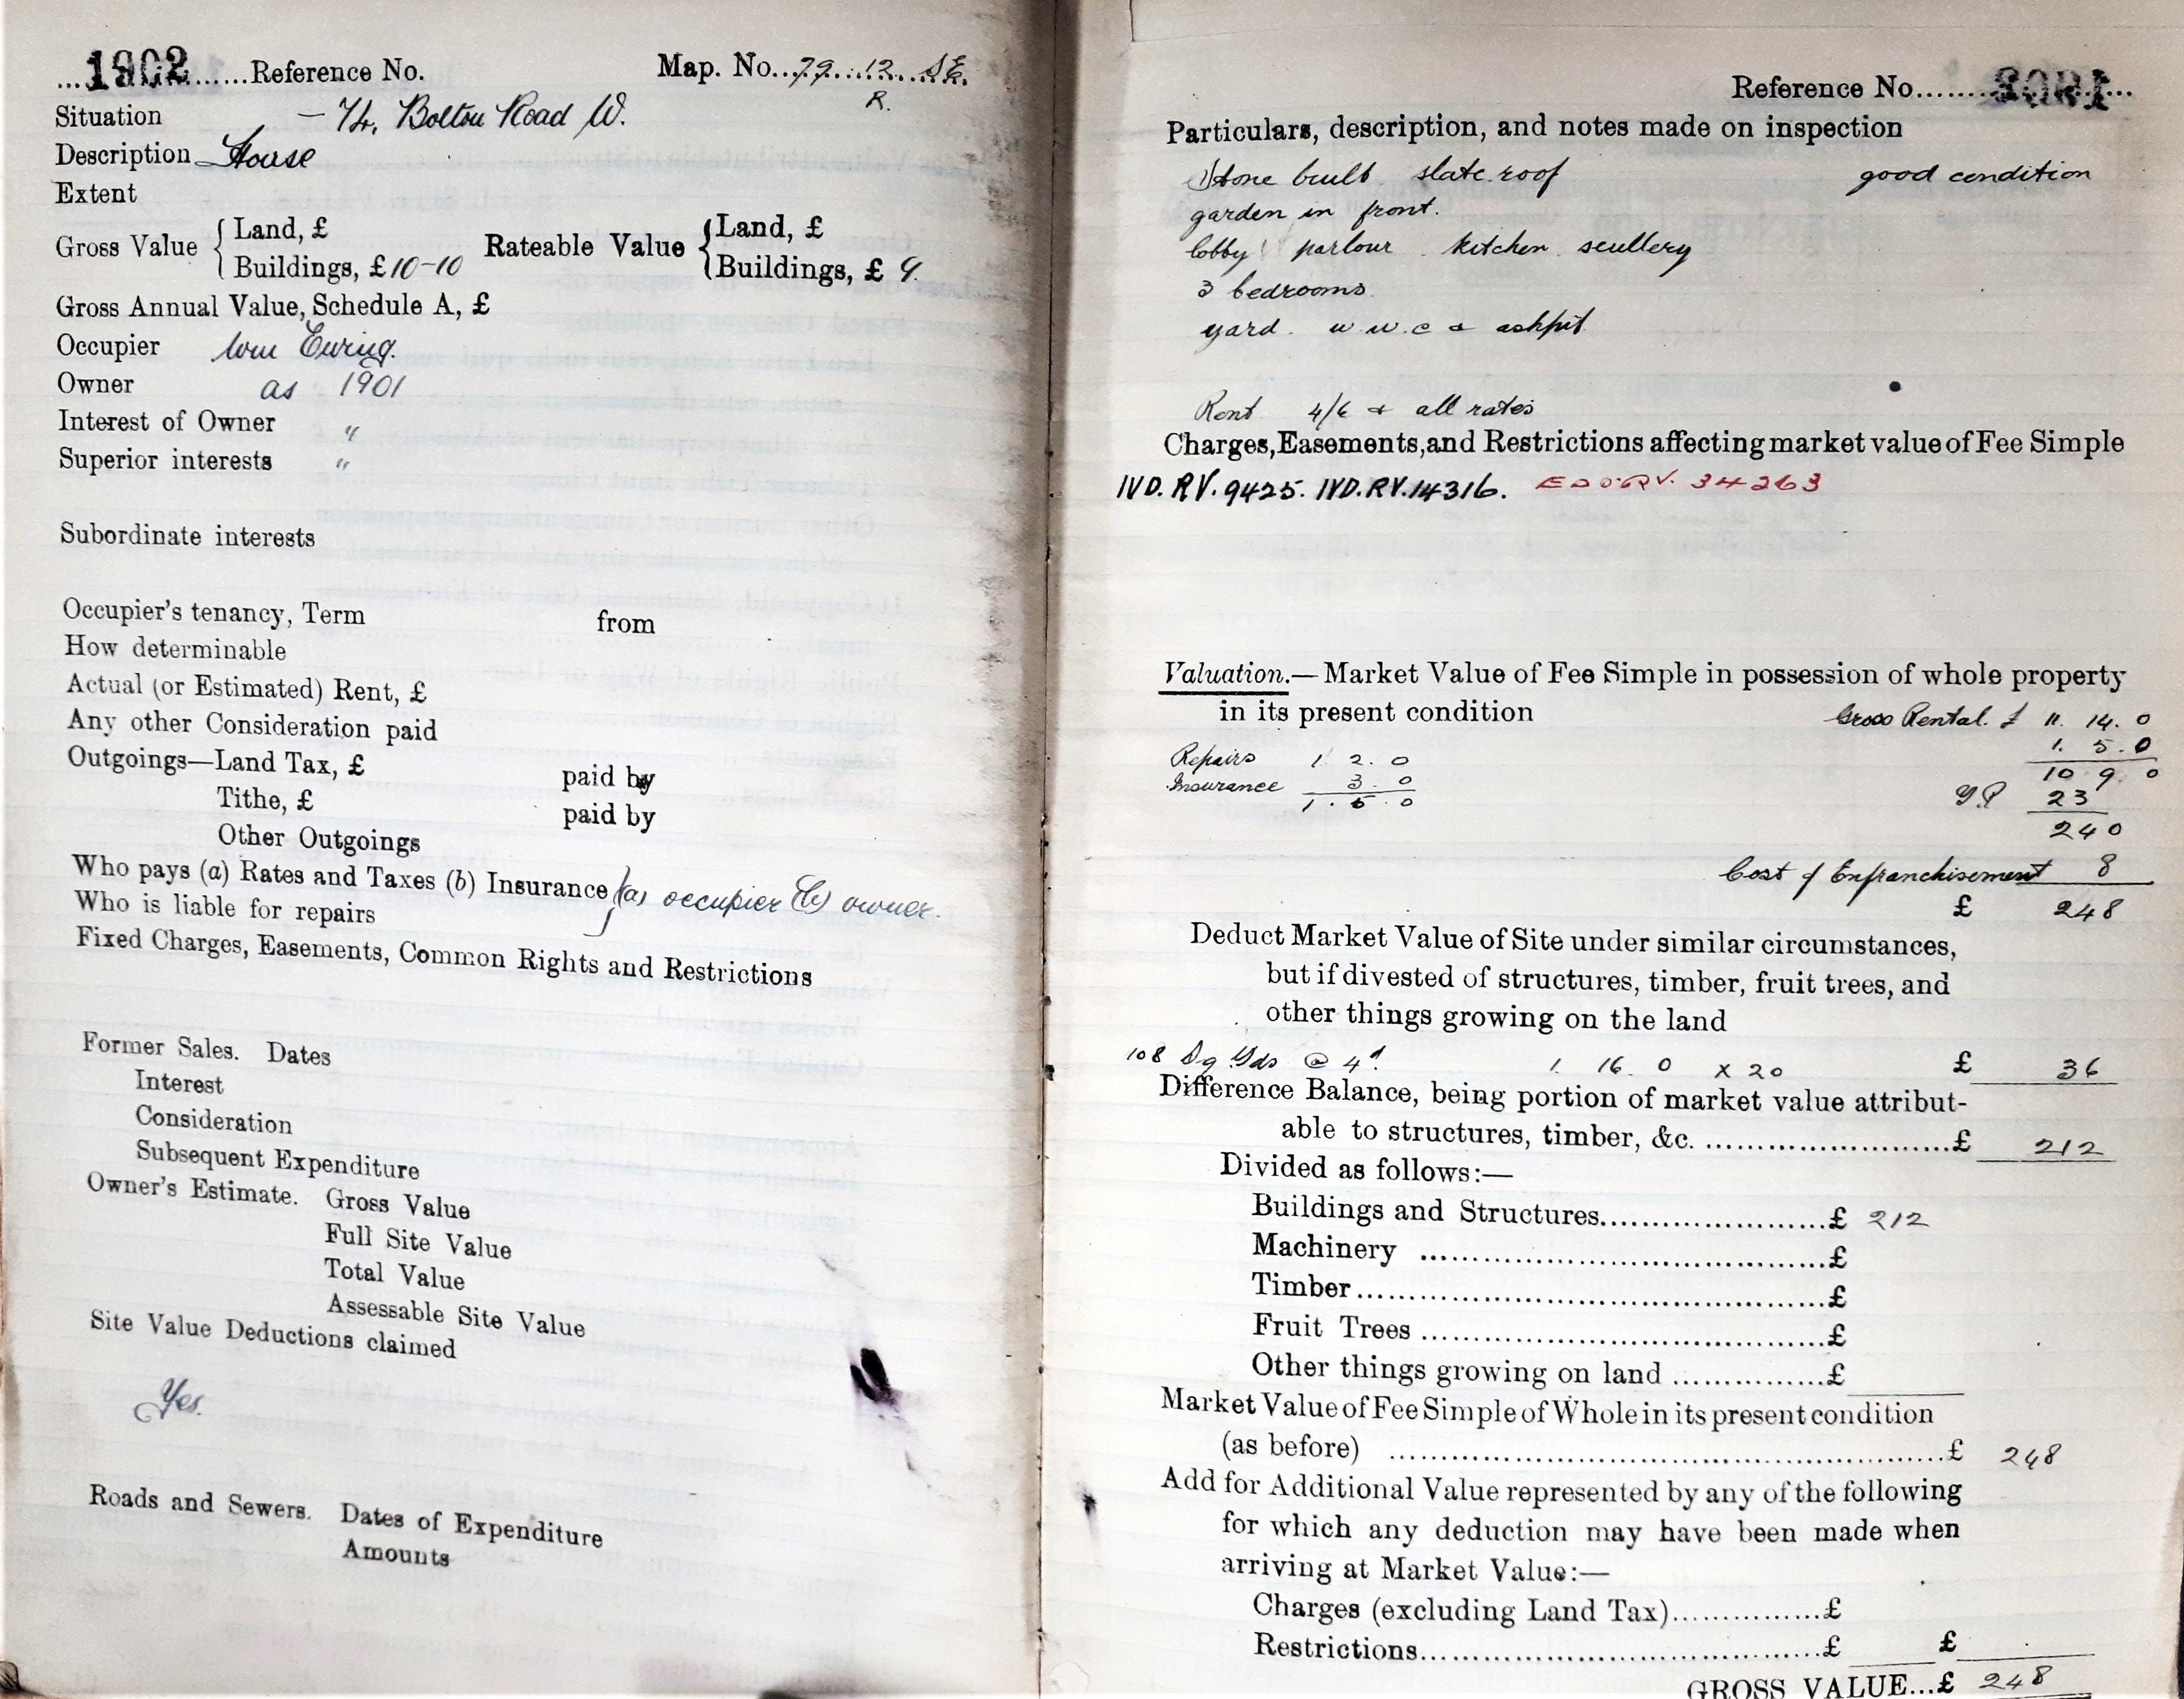 1902 Reference No. Map. No. 79 12 SE
R.
Situation — 74, Bolton Road W.
Description House
Extent
Gross Value { Land, £ Rateable Value { Land, £
Buildings, £ 10-10 Buildings, £ 9.
Gross Annual Value, Schedule A, £
Occupier Wm Ewing.
Owner as 1901
Interest of Owner "
Superior interests "
Subordinate interests
Occupier's tenancy, Term from
How determinable
Actual (or Estimated) Rent, £
Any other Consideration paid
Outgoings—Land Tax, £ paid by
Tithe, £ paid by
Other Outgoings
Who pays (a) Rates and Taxes (b) Insurance } (a) occupier (b) owner.
Who is liable for repairs
Fixed Charges, Easements, Common Rights and Restrictions
Former Sales. Dates
Interest
Consideration
Subsequent Expenditure
Owner's Estimate. Gross Value
Full Site Value
Total Value
Assessable Site Value
Site Value Deductions claimed
Yes.
Roads and Sewers. Dates of Expenditure
Amounts
Reference No.
Particulars, description, and notes made on inspection
Stone built slate roof good condition
garden in front.
lobby parlour kitchen scullery
3 bedrooms
yard. w.w.c & ashpit
Rent 4/6 & all rates
Charges, Easements, and Restrictions affecting market value of Fee Simple
IVD. RV. 9425. IVD. RV. 14316. RV. 34263
Valuation.— Market Value of Fee Simple in possession of whole property
in its present condition Gross Rental. £ 11. 14. 0
1. 5. 0
Repairs 1 2. 0 10 9 0
Insurance 3. 0 Y.P 23
1. 5. 0 240
Cost of Enfranchisement 8
£ 248
Deduct Market Value of Site under similar circumstances,
but if divested of structures, timber, fruit trees, and
other things growing on the land
108 Sq Yds @ 4d 1. 16. 0 x 20 £ 36
Difference Balance, being portion of market value attribut-
able to structures, timber, &c. £ 212
Divided as follows:—
Buildings and Structures £ 212
Machinery £
Timber £
Fruit Trees £
Other things growing on land £
Market Value of Fee Simple of Whole in its present condition
(as before) £ 248
Add for Additional Value represented by any of the following
for which any deduction may have been made when
arriving at Market Value:—
Charges (excluding Land Tax) £
Restrictions £ £
GROSS VALUE...£ 248